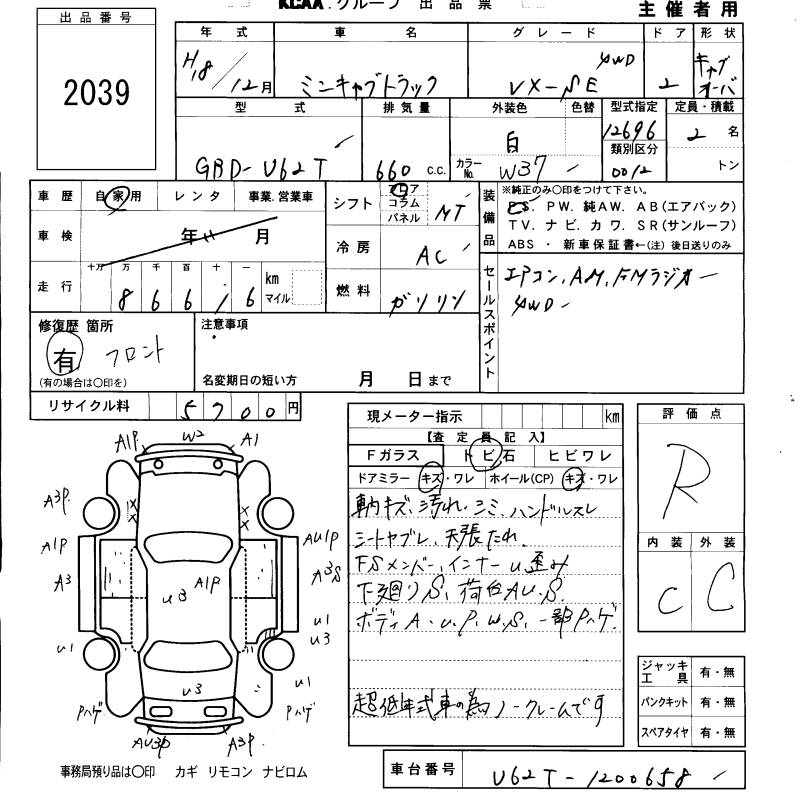 KCAA.グループ 出品票
主催者用
出品番号
2039
年式 車名 グレード ドア 形状
H18/12月 ミニキャブトラック VX-SE 4WD 2 キャブオーバ
型式 排気量 外装色 色替 型式指定 定員・積載
GBD-U62T 660 C.C. 白 12696 2名
カラーNo. W37 類別区分 0012 トン
車歴 自家用 レンタ 事業.営業車
車検 年 月
走行 十万 万 千 百 十 一 km マイル
8 6 6 1 6
シフト フロア コラム パネル MT
冷房 AC
燃料 ガソリン
装備品 ※純正のみ○印をつけて下さい。
PS. PW. 純AW. AB(エアバック)
TV. ナビ. カワ. SR(サンルーフ)
ABS ・ 新車保証書←(注) 後日送りのみ
セールスポイント
エアコン、AM、FMラジオ
4WD
修復歴 箇所
有 フロント
(有の場合は○印を)
注意事項
名変期日の短い方 月 日まで
リサイクル料 5700円
現メーター指示 km
【査定員記入】
Fガラス トビ石 ヒビワレ
ドアミラー キズ・ワレ ホイール(CP) キズ・ワレ
車内キズ、汚れ、シミ、ハンドルスレ
シートヤブレ、天張たれ.
FSメンバー、インナーu.歪み
下廻りS、荷台AU.S.
ボディA.u.P.w.S.一部Pハゲ.
超低年式車の為ノークレームです
評価点
R
内装 外装
C C
ジャッキ工具 有・無
パンクキット 有・無
スペアタイヤ 有・無
A1P W2 A1
A3P
A1P AU1P
A3 A3S
A1P
u3
u1
u3
u1 u1
u3
Pハゲ Pハゲ
AU3P A3P
事務局預り品は○印 カギ リモコン ナビロム
車台番号 U62T-1200658